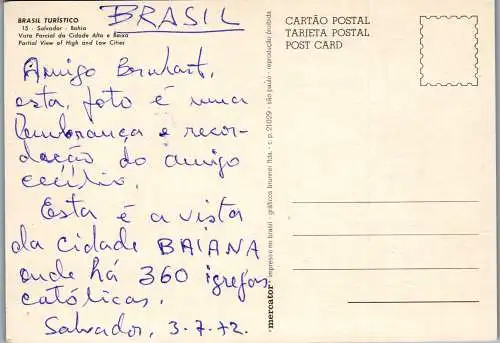 BRASIL
BRASIL TURÍSTICO
15 - Salvador - Bahia
Vista Parcial da Cidade Alta e Baixa
Partial View of High and Low Cities
Amigo
esta foto é uma
lembrança e recor-
dação do amigo
cecílio.
Esta é a vista
da cidade BAIANA
onde há 360 igrejas
católicas.
Salvador, 3.7.72.
CARTÃO POSTAL
TARJETA POSTAL
POST CARD
mercator impresso no brasil - gráficos brunner ltda. - c. p. 21029 - são paulo - reprodução proibida